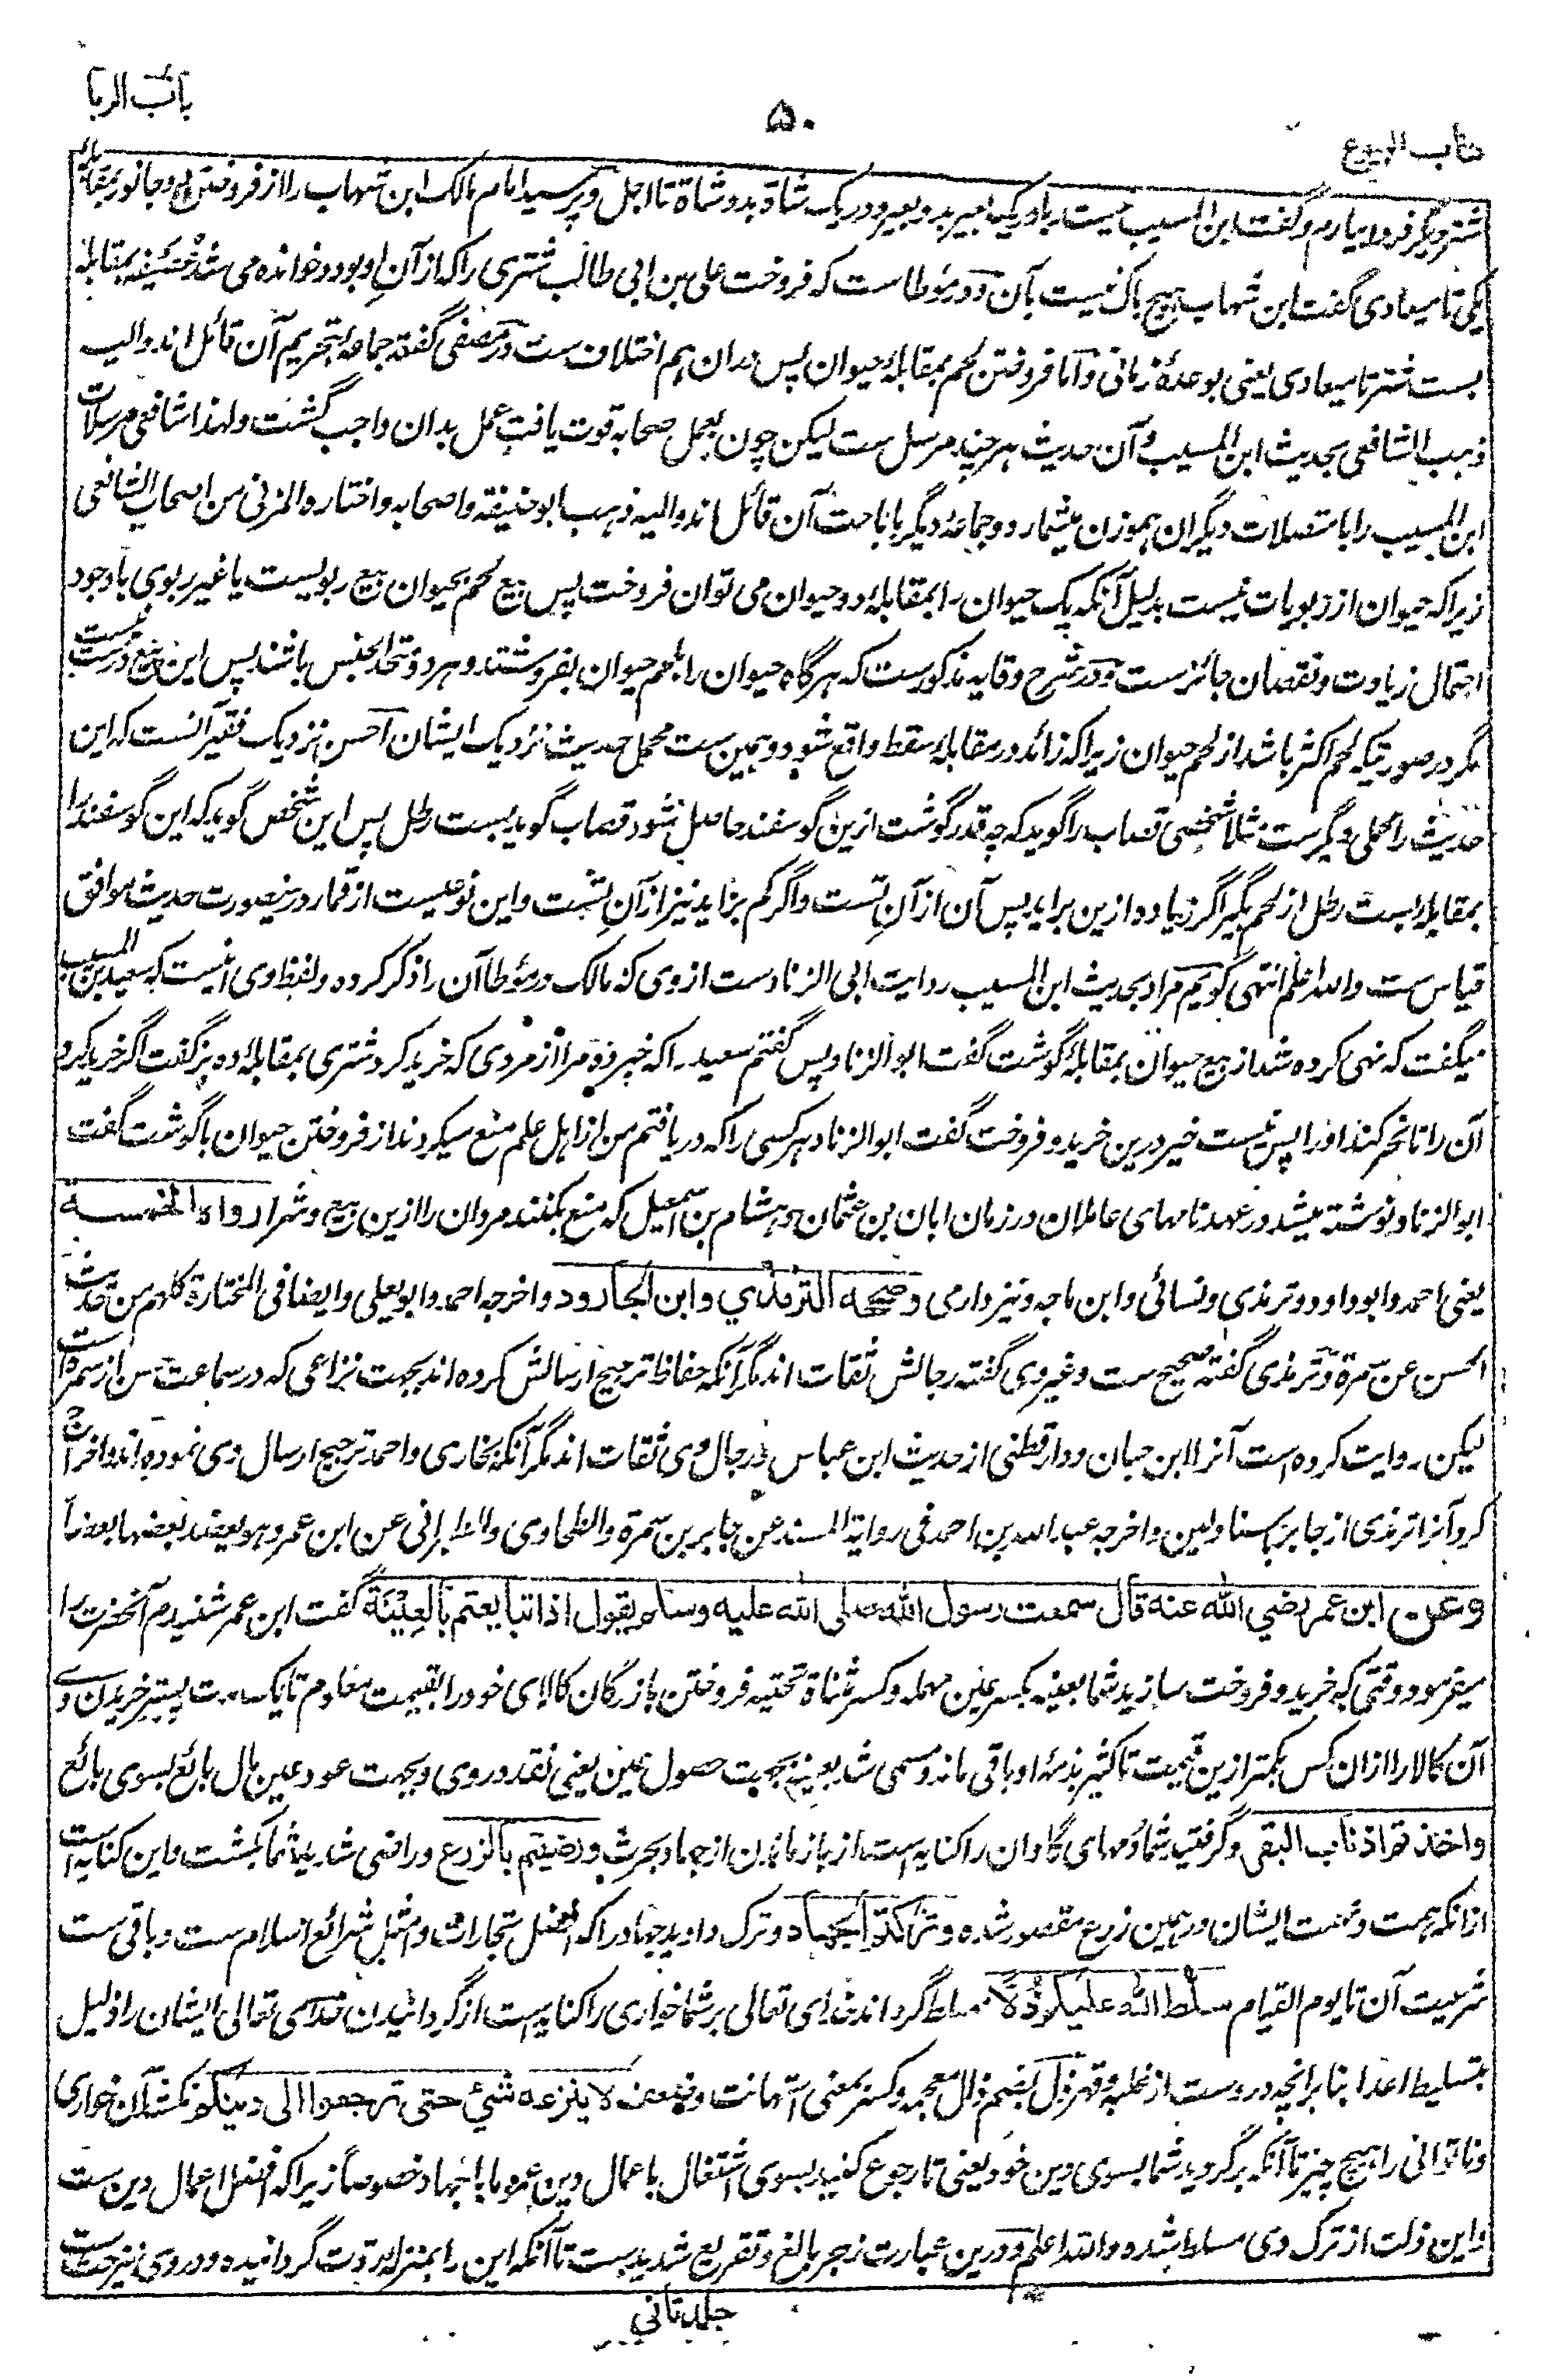 باب الربا
۵۰
کتاب البیوع
شتر دیگر فردا بیارم و گفت ابن المسیب نیست ربا در یک بعیر بدو بعیر و در یک شاة بدو شاة تا اجل و پرسید امام مالک ابن شهاب را از فروختن دو جانور بمقابله
یکی تا میعادی گفت ابن شهاب هیچ باک نیست بآن و در مؤطا ست که فروخت علی بن ابی طالب شتری را که از آنِ او بود و خوانده می شد بمقابله
بست شتر تا میعادی یعنی بوعدهٔ زمانی و اما فروختن لحم بمقابلهٔ حیوان پس دران هم اختلاف ست در مصفی گفته جماعه بتحریم آن قائل اند و الیه
ذهب الشافعی بحدیث ابن المسیب و آن حدیث هر چند مرسل ست لیکن چون بعمل صحابه قوت یافت عمل بدان واجب گشت و لهذا شافعی مرسلات
ابن المسیب را با متصلات دیگران هموزن میشمارد و جماعهٔ دیگر باباحت آن قائل اند و الیه ذهب ابو حنیفة و اصحابه و اختاره المزنی من اصحاب الشافعی
زیرا که حیوان از ربویات نیست بدلیل آنکه یک حیوان را بمقابله دو حیوان می توان فروخت پس بیع لحم بحیوان بیع ربویست یا غیر ربوی باوجود
احتمال زیادت و نقصان جائز ست و در شرح وقایه مذکور ست که هرگاه حیوان را بلحم حیوان بفروشند و هر دو متحد الجنس باشند پس این بیع درست نیست
مگر در صورتیکه لحم اکثر باشد از لحم حیوان زیرا که زائد در مقابلهٔ سقط واقع شود و همین ست محمل حدیث نزدیک ایشان احسن نزدیک فقیر آنست که این
حدیث را محلی دیگر ست مثلا شخصی قصاب را گوید که چه قدر گوشت ازین گوسفند حاصل شود قصاب گوید بست رطل پس این شخص گوید که این گوسفند را
بمقابلهٔ بست رطل از لحم بگیر اگر زیاده ازین برآید پس آن از آنِ تست و اگر کم برآید نیز از آنِ تست و این نوعیست از قمار درینصورت حدیث موافق
قیاس ست و الله اعلم انتهی گویم مراد بحدیث ابن المسیب روایت ابی الزناد ست از وی که مالک در مؤطا آن را ذکر کرده و لفظ وی اینست که سعید بن المسیب
میگفت که نهی کرده شد از بیع حیوان بمقابلهٔ گوشت گفت ابو الزناد پس گفتم سعید را که خبر ده مرا از مردی که خرید کرد شتری بمقابلهٔ ده بز گفت اگر خرید کرد
آن را تا نحر کند او را پس نیست خیر درین خرید و فروخت گفت ابو الزناد هر کسی را که دریافتم من از اهل علم منع میکردند از فروختن حیوان با گوشت گفت
ابو الزناد و نوشته میشد در عهدنامهای عاملان در زمان ابان بن عثمان و هشام بن اسمعیل که منع بکنند مردمان را ازین بیع و شرا رواه الخمسة
یعنی احمد و ابو داود و ترمذی و نسائی و ابن ماجه و نیز دارمی و صححه الترمذی و ابن الجارود و اخرجه احمد و ابو یعلی و ایضا فی المختارة کلهم من حدیث
الحسن عن سمرة و ترمذی گفته صحیح ست و غیر وی گفته رجالش ثقات اند مگر آنکه حفاظ ترجیح ارسالش کرده اند بجهت نزاعی که در سماعت حسن از سمره است
لیکن روایت کرده است آنرا ابن حبان و دارقطنی از حدیث ابن عباس و رجال وی ثقات اند مگر آنکه بخاری و احمد ترجیح ارسال وی نموده اند و اخراج
کرد آنرا ترمذی از جابر باسناد لین و اخرجه عبد الله بن احمد فی روایة المسند عن جابر بن سمرة و الطحاوی و الطبرانی عن ابن عمر و هو یعضد بعضها بعضا
وعن ابن عمر رضی الله عنه قال سمعت رسول الله صلی الله علیه وسلم یقول اذا تبایعتم بالعِیْنَة گفت ابن عمر شنیدم آنحضرت را
میفرمود وقتی که خرید و فروخت سازید شما بعینه بکسر عین مهمله و کسر مثناة تحتیه فروختن بازرگان کالای خود را بقیمت معلوم تا یک مدت پستر خریدن وی
آن کالا را ازان کس بکمتر ازین قیمت تا کثیر بذمهٔ او باقی ماند و مسمی شد بعینه بجهت حصول عین یعنی نقد در وی و بجهت عود عین مال بائع بسوی بائع
واخذتم اذناب البقر و گرفتید شما دمهای گاوان را کنایه است از باز ماندن از جهاد بحرث و رضیتم بالزرع و راضی شدید شما بکشت و این کنایه است
ازانکه همت و نهمت ایشان در همین زرع مقصور شده و ترکتم الجهاد و ترک دادید جهاد را که افضل تجارات و امثل شرائع اسلام ست و باقی ست
شرعیت آن تا یوم القیام سلط الله علیکم ذُلًّا مسلط گرداند خدای تعالی بر شما خواری را کنایه است از گردانیدن خدای تعالی ایشان را ذلیل
بتسلیط اعدا بنا بر آنچه در وست از غلبه و قهر ذل بضم ذال معجمه و کسر بمعنی استهانت و ضعف لا ینزعه شئ حتی ترجعوا الی دینکم نکشد آن خواری
و ناتوانی را هیچ چیز تا آنکه برگردید شما بسوی دین خود یعنی تا رجوع کنید بسوی اشتغال باعمال دین عموما یا بجهاد خصوصاً زیرا که افضل اعمال دین ست
و این ذلت از ترک وی مسلط شده و الله اعلم و درین عبارت زجر بالغ و تقریع شدید ست تا آنکه این را بمنزلهٔ ردت گردانیده و در وی نیز حث ست
جلد ثانی